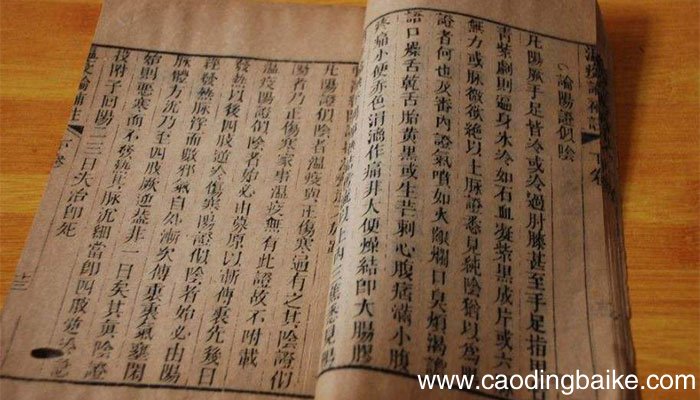 溫疫論補註 下卷
論陽證似陰
凡陽厥手足皆冷或冷過肘膝甚至手足指甲
青紫劇則遍身冰冷如石血凝紫黑成片或六
無方或脈微欲絕以上脈證悉見純陰猶以為
證者何也及審內證氣噴如火齦爛口臭煩渴譫
語口燥舌乾舌胎黃黑或生芒刺心腹痞滿小腹
疼痛小便赤色涓滴作痛非大便燥結即大腸膠
以上內三焦悉見陽
凡陽證似陰者溫疫與正傷寒通有之其陰證似
陽者乃正傷寒家事溫疫無有此證故不附載
溫疫陽證似陰者始必由募原以漸傳裏先幾日
發熱以後四肢逆冷傷寒陽證似陰者始必由陽
經發熱脈浮而數邪氣自外漸次傳裏裏氣壅閉
脈體方沉乃至四肢厥逆蓋非一日矣其真陰
始則惡寒而不發熱其脈沉細當即四肢逆冷急
投附子回陽二三日失治即死
溫疫論補註 下卷
www.caodingbaike.com